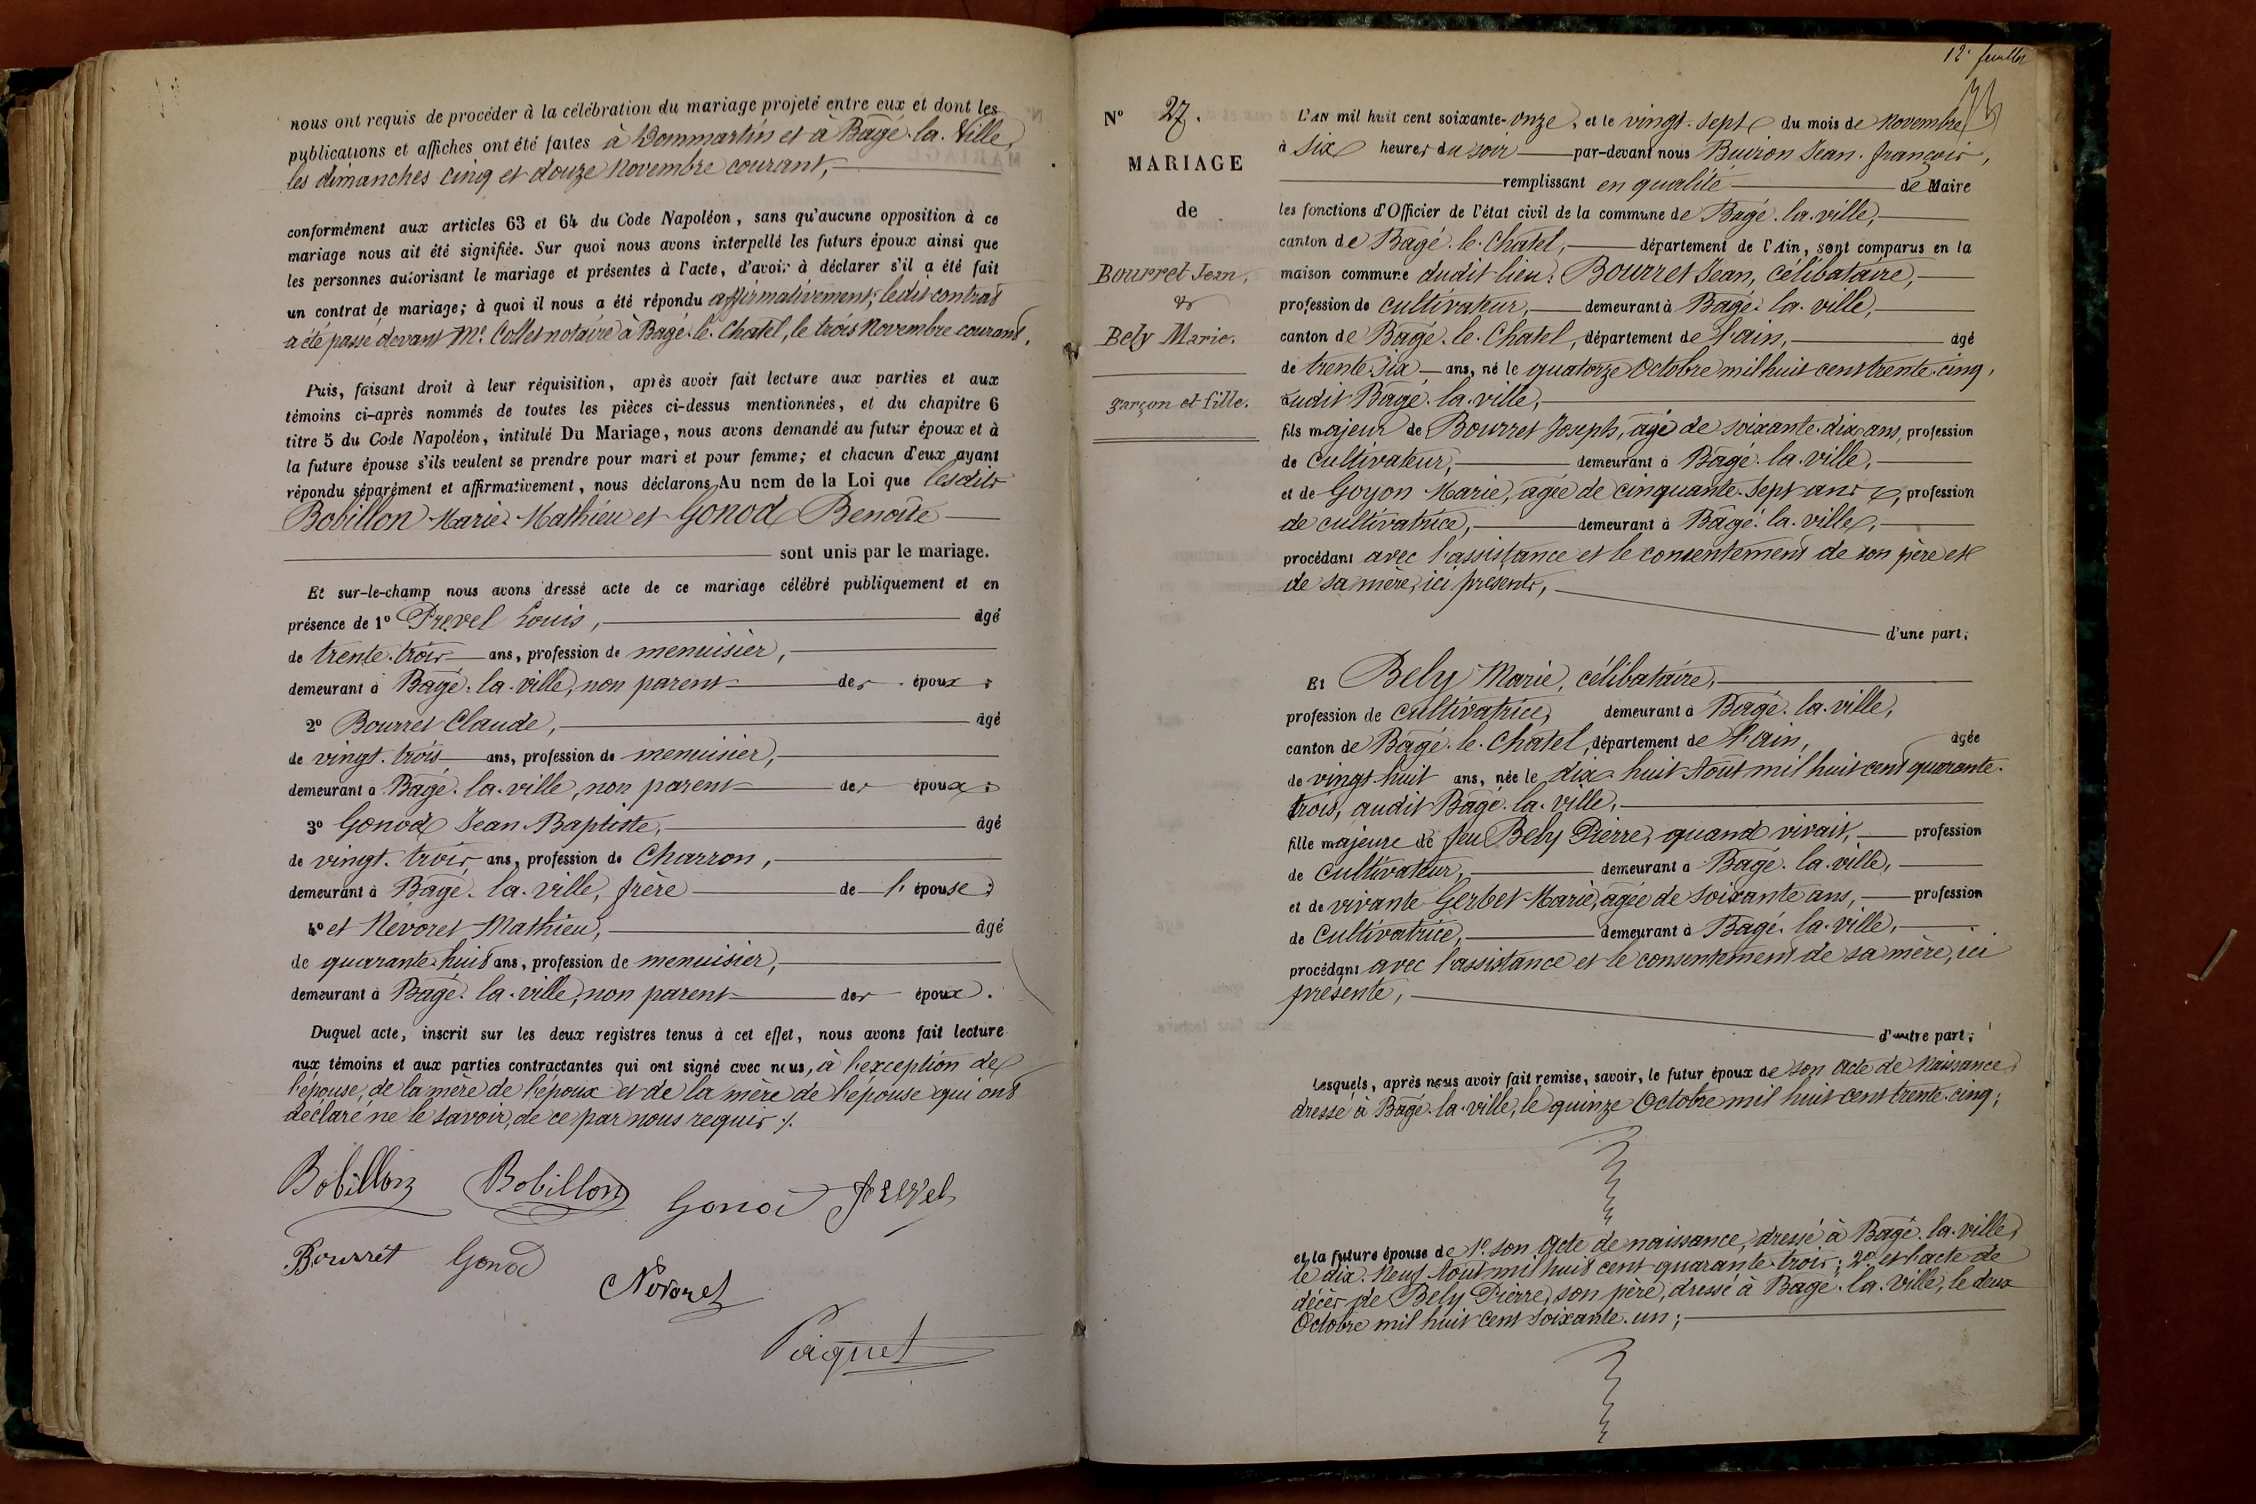 nous ont requis de procéder à la célébration du mariage projeté entre eux et dont les
publications et affiches ont été faites à Dommartin et à Bâgé-la-Ville,
les dimanches cinq et douze novembre courant,
conformément aux articles 63 et 64 du Code Napoléon, sans qu'aucune opposition à ce
mariage nous ait été signifiée. Sur quoi nous avons interpellé les futurs époux ainsi que
les personnes autorisant le mariage et présentes à l'acte, d'avoir à déclarer s'il a été fait
un contrat de mariage; à quoi il nous a été répondu affirmativement; ledit contrat
a été passé devant Me. Collet notaire à Bâgé-le-Chatel, le trois Novembre courant.
Puis, faisant droit à leur réquisition, après avoir fait lecture aux parties et aux
témoins ci-après nommés de toutes les pièces ci-dessus mentionnées, et du chapitre 6
titre 5 du Code Napoléon, intitulé Du Mariage, nous avons demandé au futur époux et à
la future épouse s'ils veulent se prendre pour mari et pour femme; et chacun d'eux ayant
répondu séparément et affirmativement, nous déclarons Au nom de la Loi que lesdits
Bobillon Marie-Mathieu et Gonod Benoîte
sont unis par le mariage.
Et sur-le-champ nous avons dressé acte de ce mariage célébré publiquement et en
présence de 1º Prevel Louis, âgé
de trente-trois ans, profession de menuisier,
demeurant à Bâgé-la-ville, non parent des époux;
2º Bourret Claude, âgé
de vingt-trois ans, profession de menuisier,
demeurant à Bâgé-la-ville, non parent des époux;
3º Gonod Jean-Baptiste, âgé
de vingt-trois ans, profession de Charron,
demeurant à Bâgé-la-ville, frère de l'épouse;
4º et Nevoret Mathieu, âgé
de quarante-huit ans, profession de menuisier,
demeurant à Bâgé-la-ville, non parent des époux.
Duquel acte, inscrit sur les deux registres tenus à cet effet, nous avons fait lecture
aux témoins et aux parties contractantes qui ont signé avec nous, à l'exception de
l'épouse, de la mère de l'époux et de la mère de l'épouse qui ont
déclaré ne le savoir, de ce par nous requis ./.
Bobillon Bobillon Gonod Prevel
Bourret Gonod
Nevoret
Paquet
12e feuillet
Nº 27.
MARIAGE
de
Bourret Jean,
&
Bely Marie.
garçon et fille.
L'AN mil huit cent soixante-onze, et le vingt-sept du mois de novembre
à six heures du soir par-devant nous Buiron Jean-françois,
remplissant en qualité de Maire
les fonctions d'Officier de l'état civil de la commune de Bâgé-la-ville,
canton de Bâgé-le-Chatel, département de l'Ain, sont comparus en la
maison commune dudit lieu: Bourret Jean, célibataire,
profession de cultivateur, demeurant à Bâgé-la-ville,
canton de Bâgé-le-Chatel, département de l'ain, âgé
de trente-six ans, né le quatorze Octobre mil huit cent trente-cinq,
audit Bâgé-la-ville,
fils majeur de Bourret Joseph, âgé de soixante-dix ans, profession
de cultivateur, demeurant à Bâgé-la-ville,
et de Goyon Marie, âgée de cinquante-sept ans, profession
de cultivatrice, demeurant à Bâgé-la-ville,
procédant avec l'assistance et le consentement de son père et
de sa mère, ici présents,
d'une part;
Et Bely Marie, célibataire,
profession de cultivatrice, demeurant à Bâgé-la-ville,
canton de Bâgé-le-Chatel, département de l'ain, âgée
de vingt-huit ans, née le dix-huit Aout mil huit cent quarante-
trois, audit Bâgé-la-ville,
fille majeure de feu Bely Pierre, quand vivait, profession
de Cultivateur, demeurant à Bâgé-la-ville,
et de vivante Gerbet Marie, âgée de soixante ans, profession
de Cultivatrice, demeurant à Bâgé-la-ville,
procédant avec l'assistance et le consentement de sa mère, ici
présente,
d'autre part;
Lesquels, après nous avoir fait remise, savoir, le futur époux de son acte de Naissance,
dressé à Bâgé-la-ville, le quinze Octobre mil huit cent trente-cinq;
et la future épouse de 1º. son acte de naissance, dressé à Bâgé-la-ville,
le dix-neuf Aout mil huit cent quarante-trois; 2º et l'acte de
décès de Bely Pierre, son père, dressé à Bâgé-la-ville, le deux
Octobre mil huit cent soixante-un;